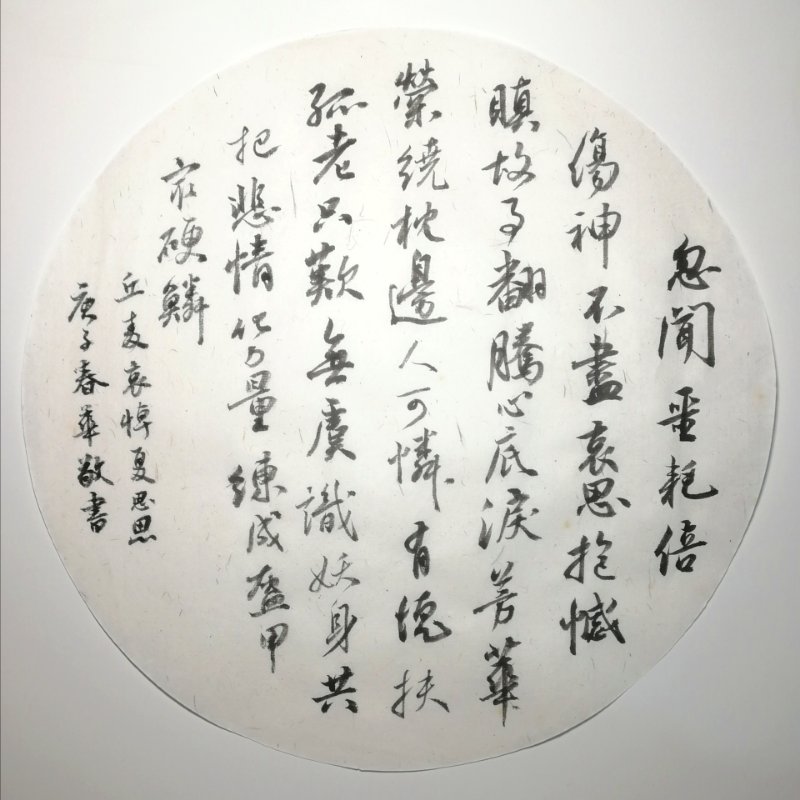 忽聞噩耗倍
傷神不盡哀思抱憾
瞋故事翻騰心底淚芳華
縈繞枕邊人可憐有愧扶
孤老只歎無虞識妖身共
把悲情化力量練成盔甲
衣硬鱗
丘麦哀悼夏思思
庚子春華敬書